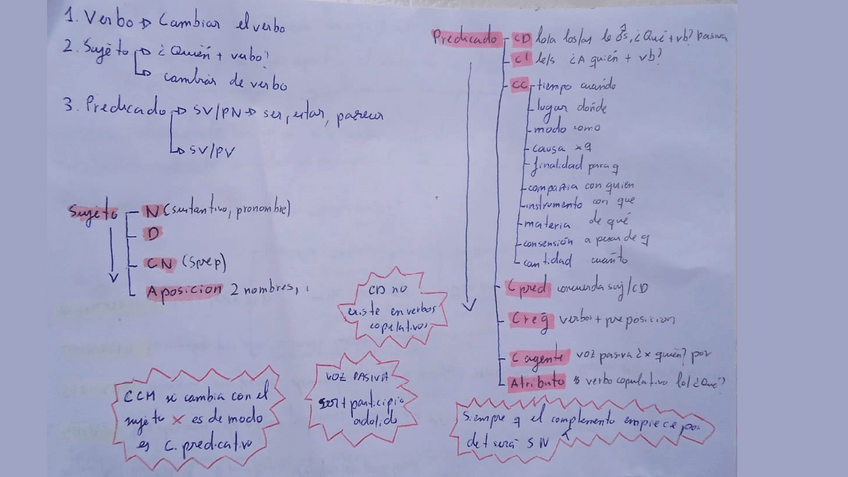 1. Verbo → Cambiar el verbo
2. Sujeto → ¿Quién + verbo?
→ cambiar de verbo
3. Predicado → SV/PN → ser, estar, parecer
→ SV/PV
Sujeto
N (sustantivo, pronombre)
D
CN (Sprep)
Aposicion 2 nombres, :
CD no
existe en verbos
copulativos
CCM si cambia con el
sujeto x es de modo
es C. predicativo
VOZ PASIVA
ser + participio
ado/ido
Predicado
CD lo/a los/as le ¿Qué + vb? pasiva
CI le/s ¿A quién + vb?
CC tiempo cuando
lugar donde
modo como
causa xq
finalidad para q
compañia con quien
instrumento con que
materia de qué
consensión a pesar de q
cantidad cuánto
C pred concuerda suj/CD
C reg verbo + preposicion
C. agente voz pasiva ¿x quién? por
Atributo verbo copulativo lo ¿Qué?
Siempre q el complemento empiece por
det será SN